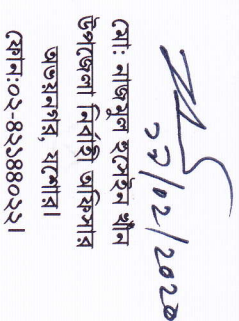 মো: নাজমুল হুসেইন খাঁন
উপজেলা নির্বাহি অফিসার
অভয়নগর, যশোর।
ফোন:০২-৪২১৪৪০২২।